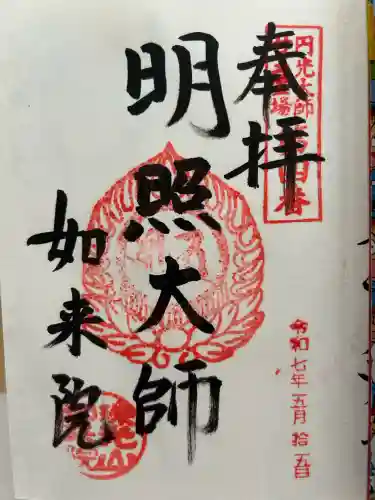 奉拝
円光大師
明照大師
如来院
令和七年五月拾五日